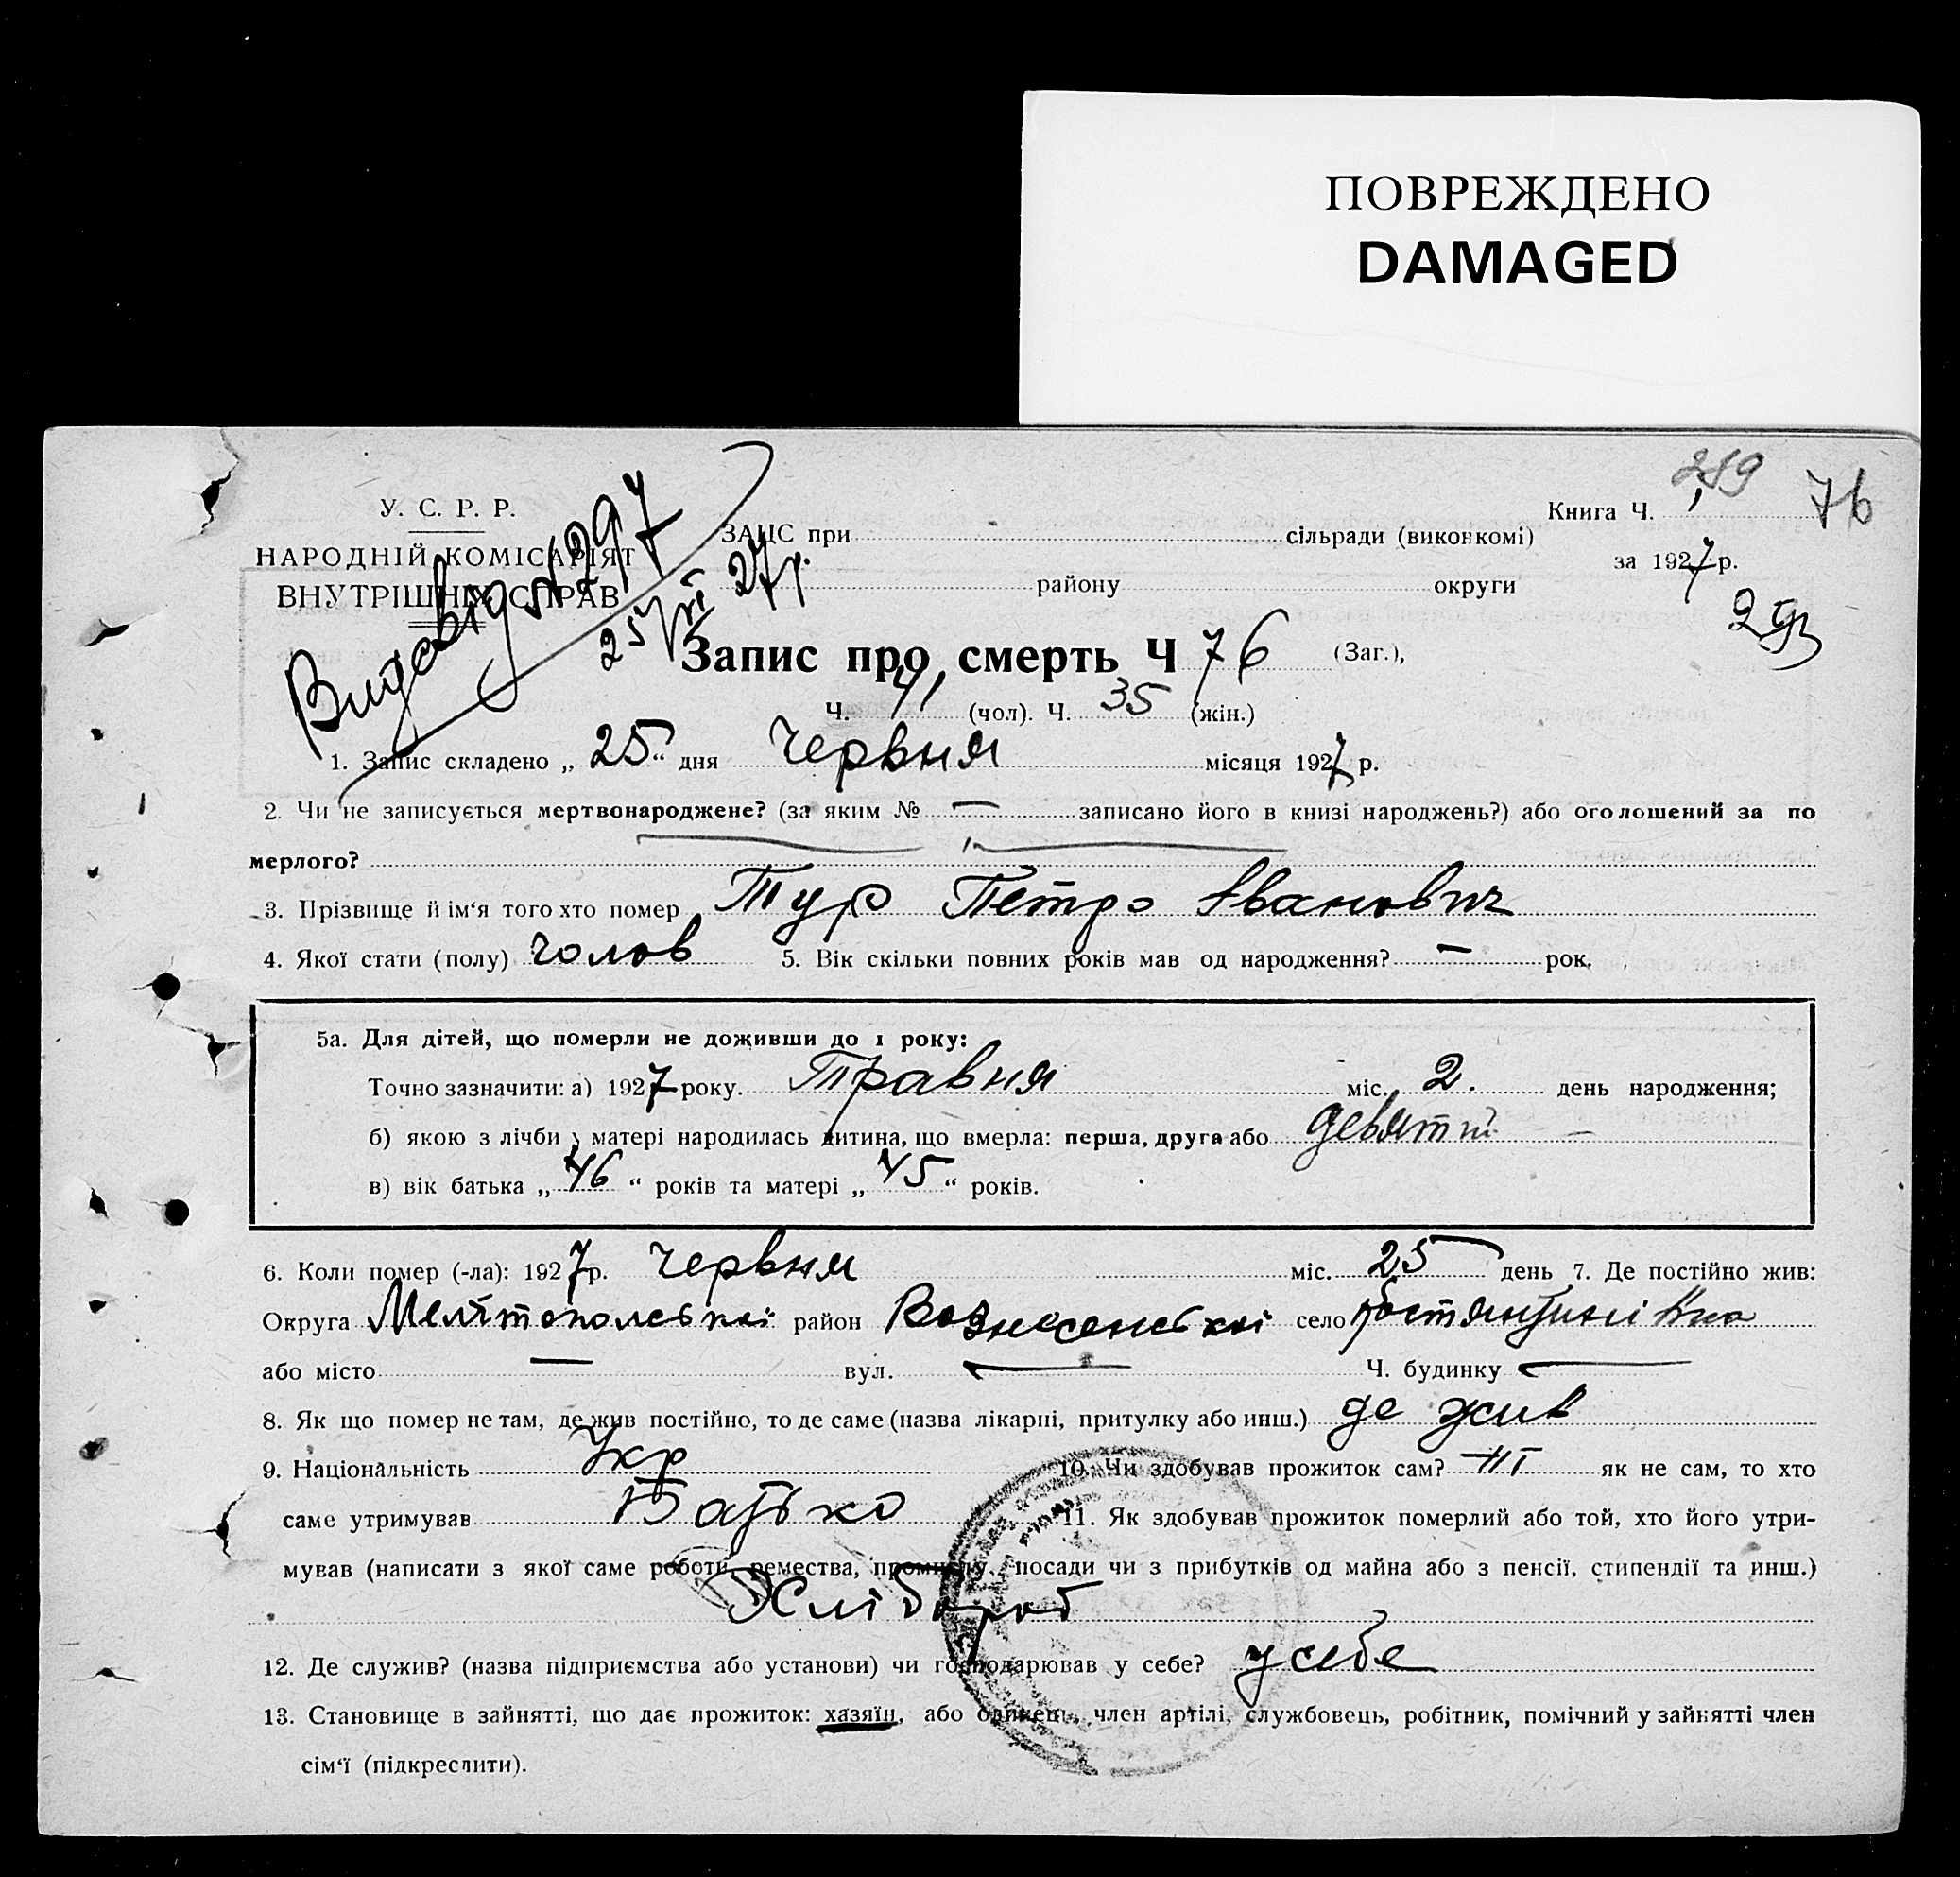 ПОВРЕЖДЕНО
DAMAGED
289
76
У. С. Р. Р.
НАРОДНІЙ КОМІСАРІЯТ
ВНУТРІШНІХ СПРАВ
Видавід № 297
25/VI 27р.
ЗАЦС при сільради (виконкомі)
району округи
Книга Ч.
за 1927 р.
293
Запис про смерть Ч 76 (Заг.),
Ч. 41 (чол). Ч. 35 (жін.)
1. Запис складено „ 25 “ дня Червня місяця 1927 р.
2. Чи не записується мертвонароджене? (за яким № — записано його в книзі народжень?) або оголошений за по
мерлого?
3. Прізвище й ім‘я того хто помер Тур Петро Іванович
4. Якої стати (полу) чолов 5. Вік скільки повних років мав од народження? — рок.
5а. Для дітей, що померли не доживши до 1 року:
Точно зазначити: а) 1927 року. Травня міс. 2. день народження;
б) якою з лічби у матері народилась дитина, що вмерла: перша, друга або девятий
в) вік батька „ 46 “ років та матері „ 45 “ років.
6. Коли помер (-ла): 1927 р. Червня міс. 25 день 7. Де постійно жив:
Округа Мелітопольські район Вознесенські село Костянтинівка
або місто — вул. — Ч. будинку —
8. Як що помер не там, де жив постійно, то де саме (назва лікарні, притулку або инш.) де жив
9. Національність Укр 10. Чи здобував прожиток сам? ні як не сам, то хто
саме утримував Батько 11. Як здобував прожиток померлий або той, хто його утри-
мував (написати з якої саме роботи, ремества, промислу, посади чи з прибутків од майна або з пенсії, стипендії та инш.)
Хлібороб
12. Де служив? (назва підприємства або установи) чи господарював у себе? у себе
13. Становище в зайнятті, що дає прожиток: хазяїн, або одинець, член артілі, службовець, робітник, помічний у зайнятті член
сім‘ї (підкреслити).